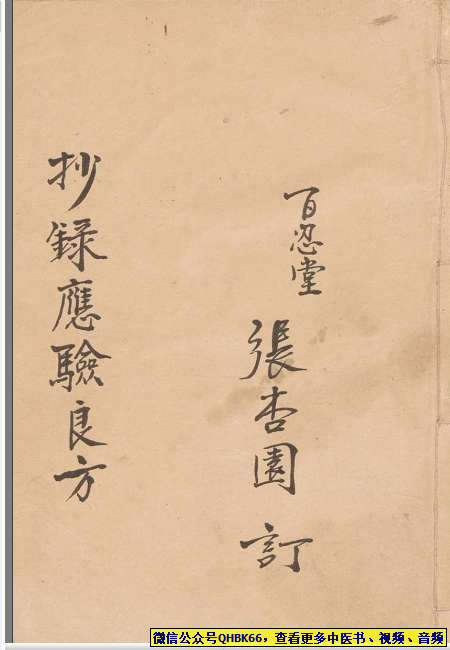 百忍堂
張杏園 訂
抄録應驗良方
微信公众号QHBK66，查看更多中医书、视频、音频